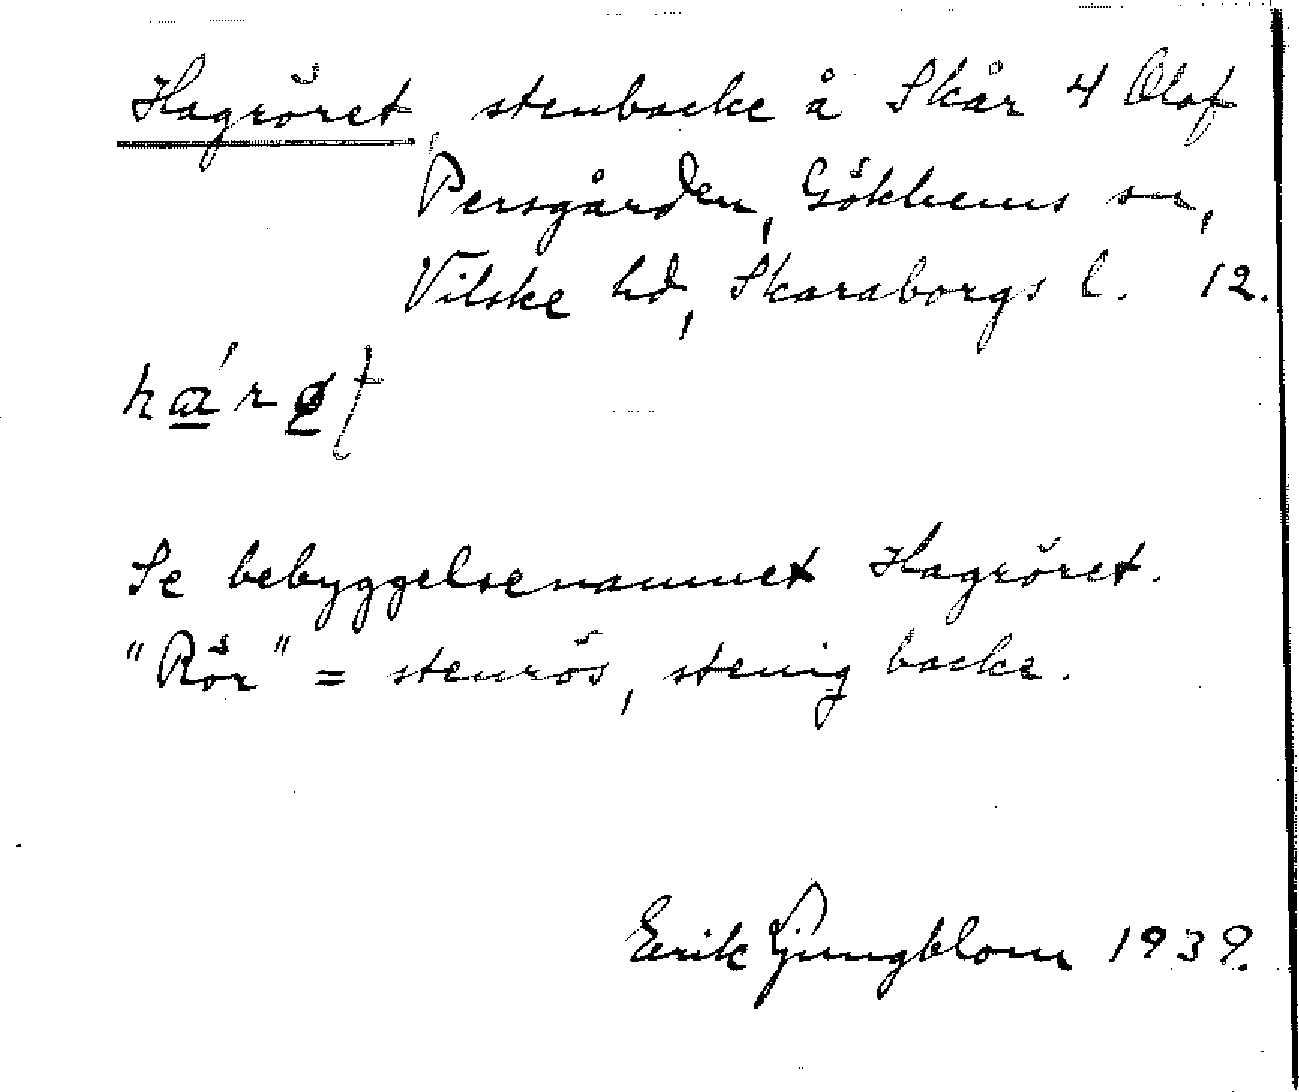 Hagröret, stenbacke å Skår 4 Olof
Persgården, Gökhems sn,
Vilske hd, Skaraborgs l. 12.
Se bebyggelsenamnet Hagröret.
"Rör" = stenrös, stenig backe.
Erik Ljungblom 1939.